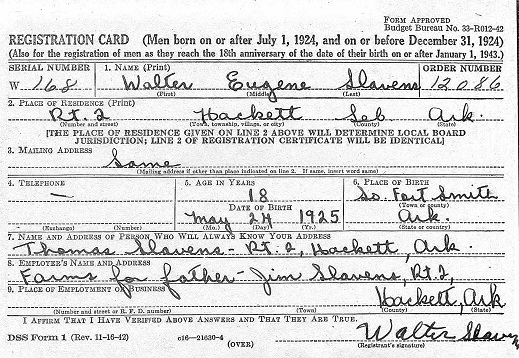 FORM APPROVED
Budget Bureau No. 33-R012-42
REGISTRATION CARD (Men born on or after July 1, 1924, and on or before December 31, 1924)
(Also for the registration of men as they reach the 18th anniversary of the date of their birth on or after January 1, 1943.)
SERIAL NUMBER 1. NAME (Print) ORDER NUMBER
W 168 Walter Eugene Slavens 12086
(First) (Middle) (Last)
2. PLACE OF RESIDENCE (Print)
Rt. 2 Hackett Seb Ark.
(Number and street) (Town, township, village, or city) (County) (State)
[THE PLACE OF RESIDENCE GIVEN ON LINE 2 ABOVE WILL DETERMINE LOCAL BOARD
JURISDICTION; LINE 2 OF REGISTRATION CERTIFICATE WILL BE IDENTICAL]
3. MAILING ADDRESS
Same
(Mailing address if other than place indicated on line 2. If same, insert word same)
4. TELEPHONE 5. AGE IN YEARS 6. PLACE OF BIRTH
— 18 So. Fort Smith
DATE OF BIRTH (Town or county)
May 24 1925 Ark.
(Exchange) (Number) (Mo.) (Day) (Yr.) (State or country)
7. NAME AND ADDRESS OF PERSON WHO WILL ALWAYS KNOW YOUR ADDRESS
Thomas Slavens - Rt. 2, Hackett, Ark.
8. EMPLOYER'S NAME AND ADDRESS
Farms for father - Jim Slavens, Rt. 2,
9. PLACE OF EMPLOYMENT OR BUSINESS
Hackett, Ark
(Number and street or R. F. D. number) (Town) (County) (State)
I AFFIRM THAT I HAVE VERIFIED ABOVE ANSWERS AND THAT THEY ARE TRUE.
DSS Form 1 (Rev. 11-16-42) c16-21630-4 Walter
(OVER) (Registrant's signature)